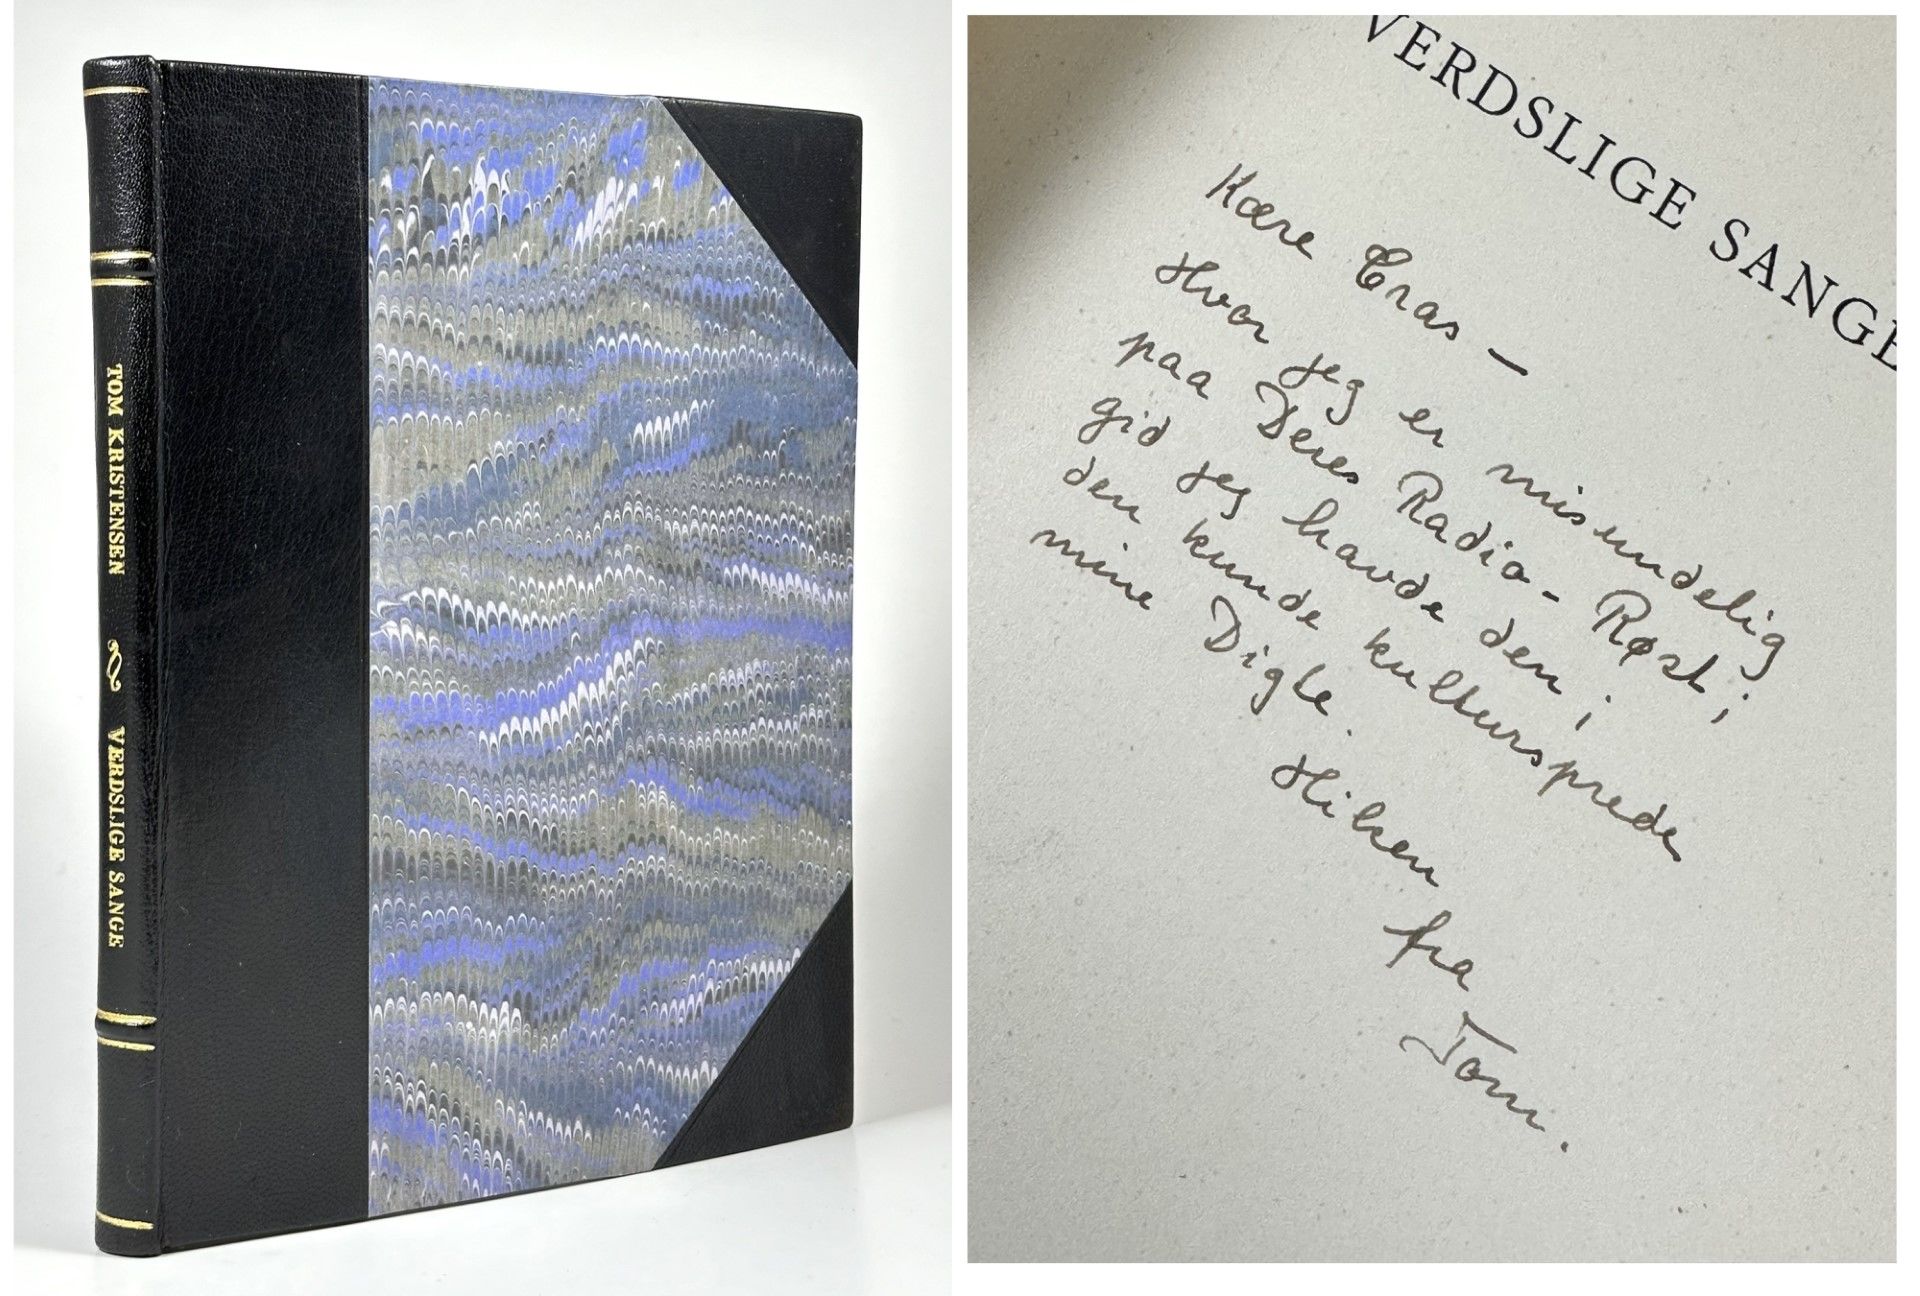 TOM KRISTENSEN VERDSLIGE SANGE
VERDSLIGE SANGE
Kære Eras —
Hvor jeg er misundelig
paa Deres Radio-Røst;
gid jeg havde den i
den kunde kultursprede
mine Digte.
Hilsen
fra
Tom.